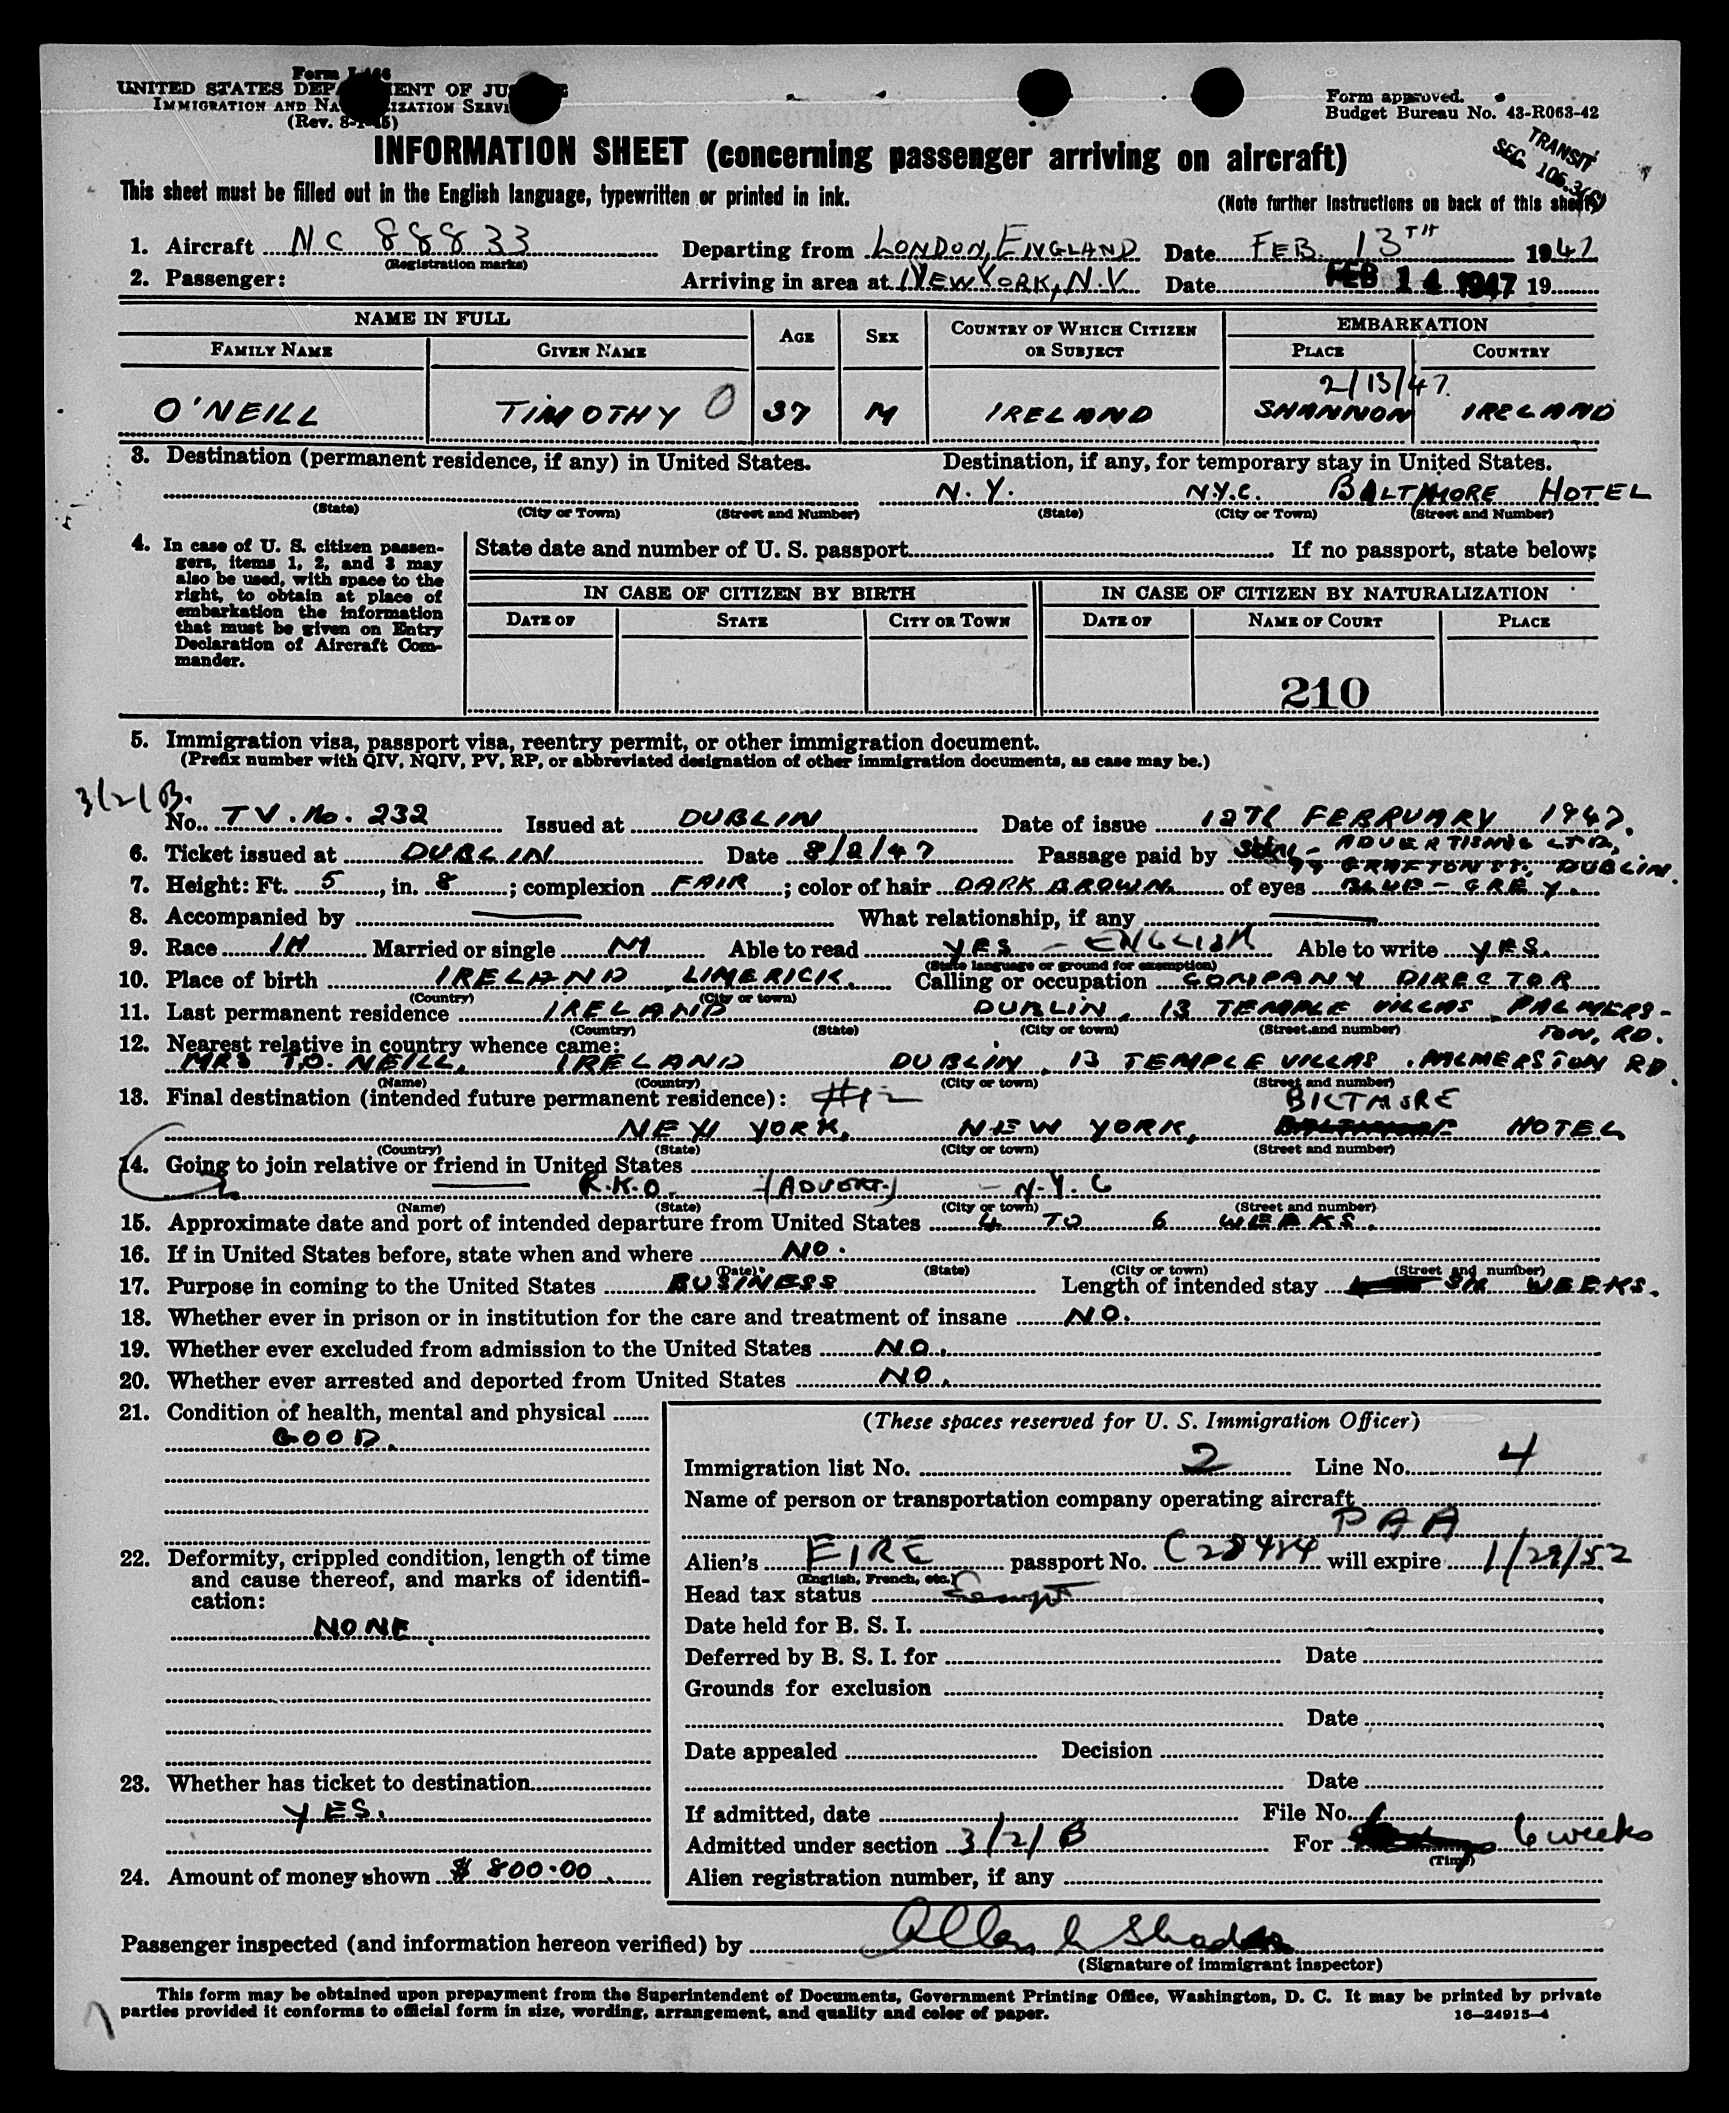 Form I-466
UNITED STATES DEPARTMENT OF JUSTICE
IMMIGRATION AND NATURALIZATION SERVICE
(Rev. 8-1-45)
Form approved.
Budget Bureau No. 43-R063-42
TRANSIT
SEC. 106.3(6)
INFORMATION SHEET (concerning passenger arriving on aircraft)
This sheet must be filled out in the English language, typewritten or printed in ink.
(Note further instructions on back of this sheet)
1. Aircraft NC 88833 Departing from LONDON, ENGLAND Date FEB. 13TH 1947
(Registration marks)
2. Passenger: Arriving in area at NEW YORK, N.Y. Date FEB 14 1947 19
NAME IN FULL AGE SEX COUNTRY OF WHICH CITIZEN OR SUBJECT EMBARKATION
FAMILY NAME GIVEN NAME PLACE COUNTRY
2/13/47.
O'NEILL TIMOTHY O 37 M IRELAND SHANNON IRELAND
3. Destination (permanent residence, if any) in United States. Destination, if any, for temporary stay in United States.
N.Y. N.Y.C. BALTIMORE HOTEL
(State) (City or Town) (Street and Number) (State) (City or Town) (Street and Number)
4. In case of U. S. citizen passengers, items 1, 2, and 3 may also be used, with space to the right, to obtain at place of embarkation the information that must be given on Entry Declaration of Aircraft Commander.
State date and number of U. S. passport If no passport, state below:
IN CASE OF CITIZEN BY BIRTH IN CASE OF CITIZEN BY NATURALIZATION
DATE OF STATE CITY OR TOWN DATE OF NAME OF COURT PLACE
210
5. Immigration visa, passport visa, reentry permit, or other immigration document.
(Prefix number with QIV, NQIV, PV, RP, or abbreviated designation of other immigration documents, as case may be.)
3/2/B.
No. TV. No. 232 Issued at DUBLIN Date of issue 12TH FEBRUARY 1947.
6. Ticket issued at DUBLIN Date 8/2/47 Passage paid by - ADVERTISING LTD,
GRAFTON ST., DUBLIN.
7. Height: Ft. 5, in. 8; complexion FAIR; color of hair DARK BROWN of eyes BLUE-GREY.
8. Accompanied by — What relationship, if any —
9. Race IR Married or single M Able to read YES - ENGLISH Able to write YES.
(State language or ground for exemption)
10. Place of birth IRELAND, LIMERICK. Calling or occupation COMPANY DIRECTOR
(Country) (City or town)
11. Last permanent residence IRELAND DUBLIN, 13 TEMPLE VILLAS, PALMERS-
(Country) (State) (City or town) (Street and number)
TON, RD.
12. Nearest relative in country whence came:
MRS T.O. NEILL, IRELAND DUBLIN, 13 TEMPLE VILLAS, PALMERSTON RD.
(Name) (Country) (City or town) (Street and number)
13. Final destination (intended future permanent residence): #12 BILTMORE
NEW YORK, NEW YORK, HOTEL
(Country) (State) (City or town) (Street and number)
14. Going to join relative or friend in United States
R.K.O. (ADVERT.) - N.Y.C
(Name) (State) (City or town) (Street and number)
15. Approximate date and port of intended departure from United States 4 TO 6 WEEKS.
16. If in United States before, state when and where NO.
(Date) (State) (City or town) (Street and number)
17. Purpose in coming to the United States BUSINESS Length of intended stay SIX WEEKS.
18. Whether ever in prison or in institution for the care and treatment of insane NO.
19. Whether ever excluded from admission to the United States NO.
20. Whether ever arrested and deported from United States NO.
21. Condition of health, mental and physical
GOOD.
22. Deformity, crippled condition, length of time and cause thereof, and marks of identification:
NONE.
23. Whether has ticket to destination
YES.
24. Amount of money shown $ 800.00.
(These spaces reserved for U. S. Immigration Officer)
Immigration list No. 2 Line No. 4
Name of person or transportation company operating aircraft
PAA
Alien's EIRE passport No. C28484 will expire 1/29/52
(English, French, etc.)
Head tax status Exempt
Date held for B. S. I.
Deferred by B. S. I. for Date
Grounds for exclusion
Date
Date appealed Decision
Date
If admitted, date File No.
Admitted under section 3/2/B For 6 weeks
(Time)
Alien registration number, if any
Passenger inspected (and information hereon verified) by
(Signature of immigrant inspector)
This form may be obtained upon prepayment from the Superintendent of Documents, Government Printing Office, Washington, D. C. It may be printed by private
parties provided it conforms to official form in size, wording, arrangement, and quality and color of paper.
16—24915-4